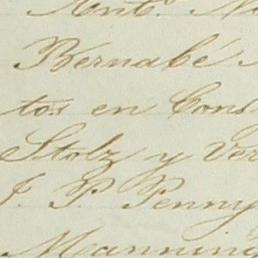 Ant.
Bernabé
tos en Cons
Stolz y Ver
J. P. Penny
Manning